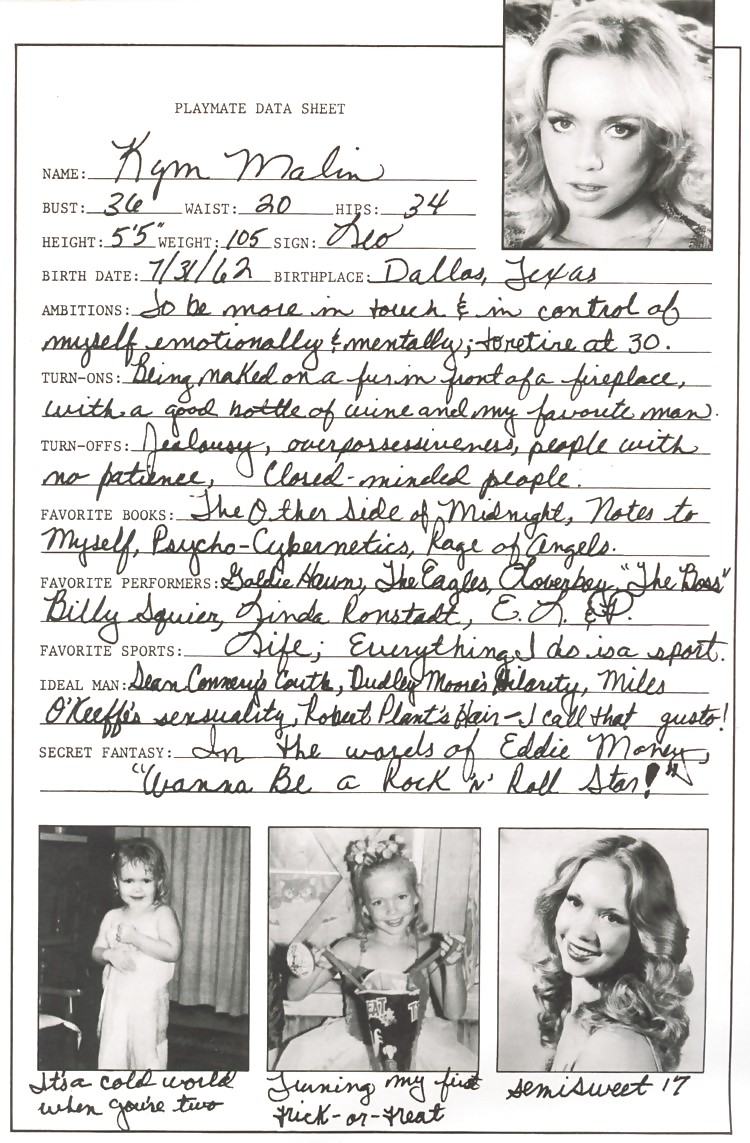 PLAYMATE DATA SHEET
NAME: Kym Malin
BUST: 36 WAIST: 20 HIPS: 34
HEIGHT: 5'5" WEIGHT: 105 SIGN: Leo
BIRTH DATE: 7/31/62 BIRTHPLACE: Dallas, Texas
AMBITIONS: To be more in touch & in control of
myself emotionally & mentally; to retire at 30.
TURN-ONS: Being naked on a fur in front of a fireplace,
with a good bottle of wine and my favorite man.
TURN-OFFS: Jealousy, overpossessiveness, people with
no patience, Closed-minded people.
FAVORITE BOOKS: The Other Side of Midnight, Notes to
Myself, Psycho-Cybernetics, Rage of Angels.
FAVORITE PERFORMERS: Goldie Hawn, The Eagles, Loverboy, "The Boss"
Billy Squier, Linda Ronstadt, E. L. & P.
FAVORITE SPORTS: Life; Everything I do is a sport.
IDEAL MAN: Sean Connery's Couth, Dudley Moore's Hilarity, Miles
O'Keeffe's sensuality, Robert Plant's Hair - I call that gusto!
SECRET FANTASY: In the words of Eddie Money,
"Wanna Be a Rock 'n' Roll Star!"
EAT
It's a cold world
when you're two
Turning my first
trick-or-treat
semisweet 17